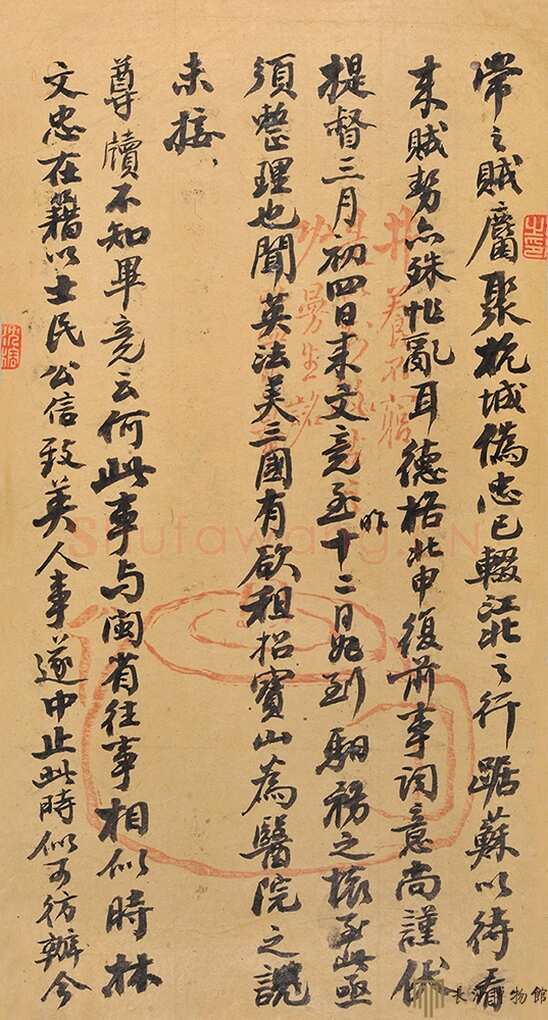 常之賊麕聚杭城偽忠已輟江北之行踞蘇以待看
來賊勢亦殊忙亂耳德格北申復前事詞意尚謹伏
提督三月初四日來文竟至昨十二月始到馹務之壞至此亟
須整理也聞英法美三國有欲租招寶山為醫院之說
未接
尊牘不知畢竟云何此事与閩省往事相似時林
文忠在籍以士民公信致英人事遂中止此時似可仿辦今
shufawang.cn
長沙博物館